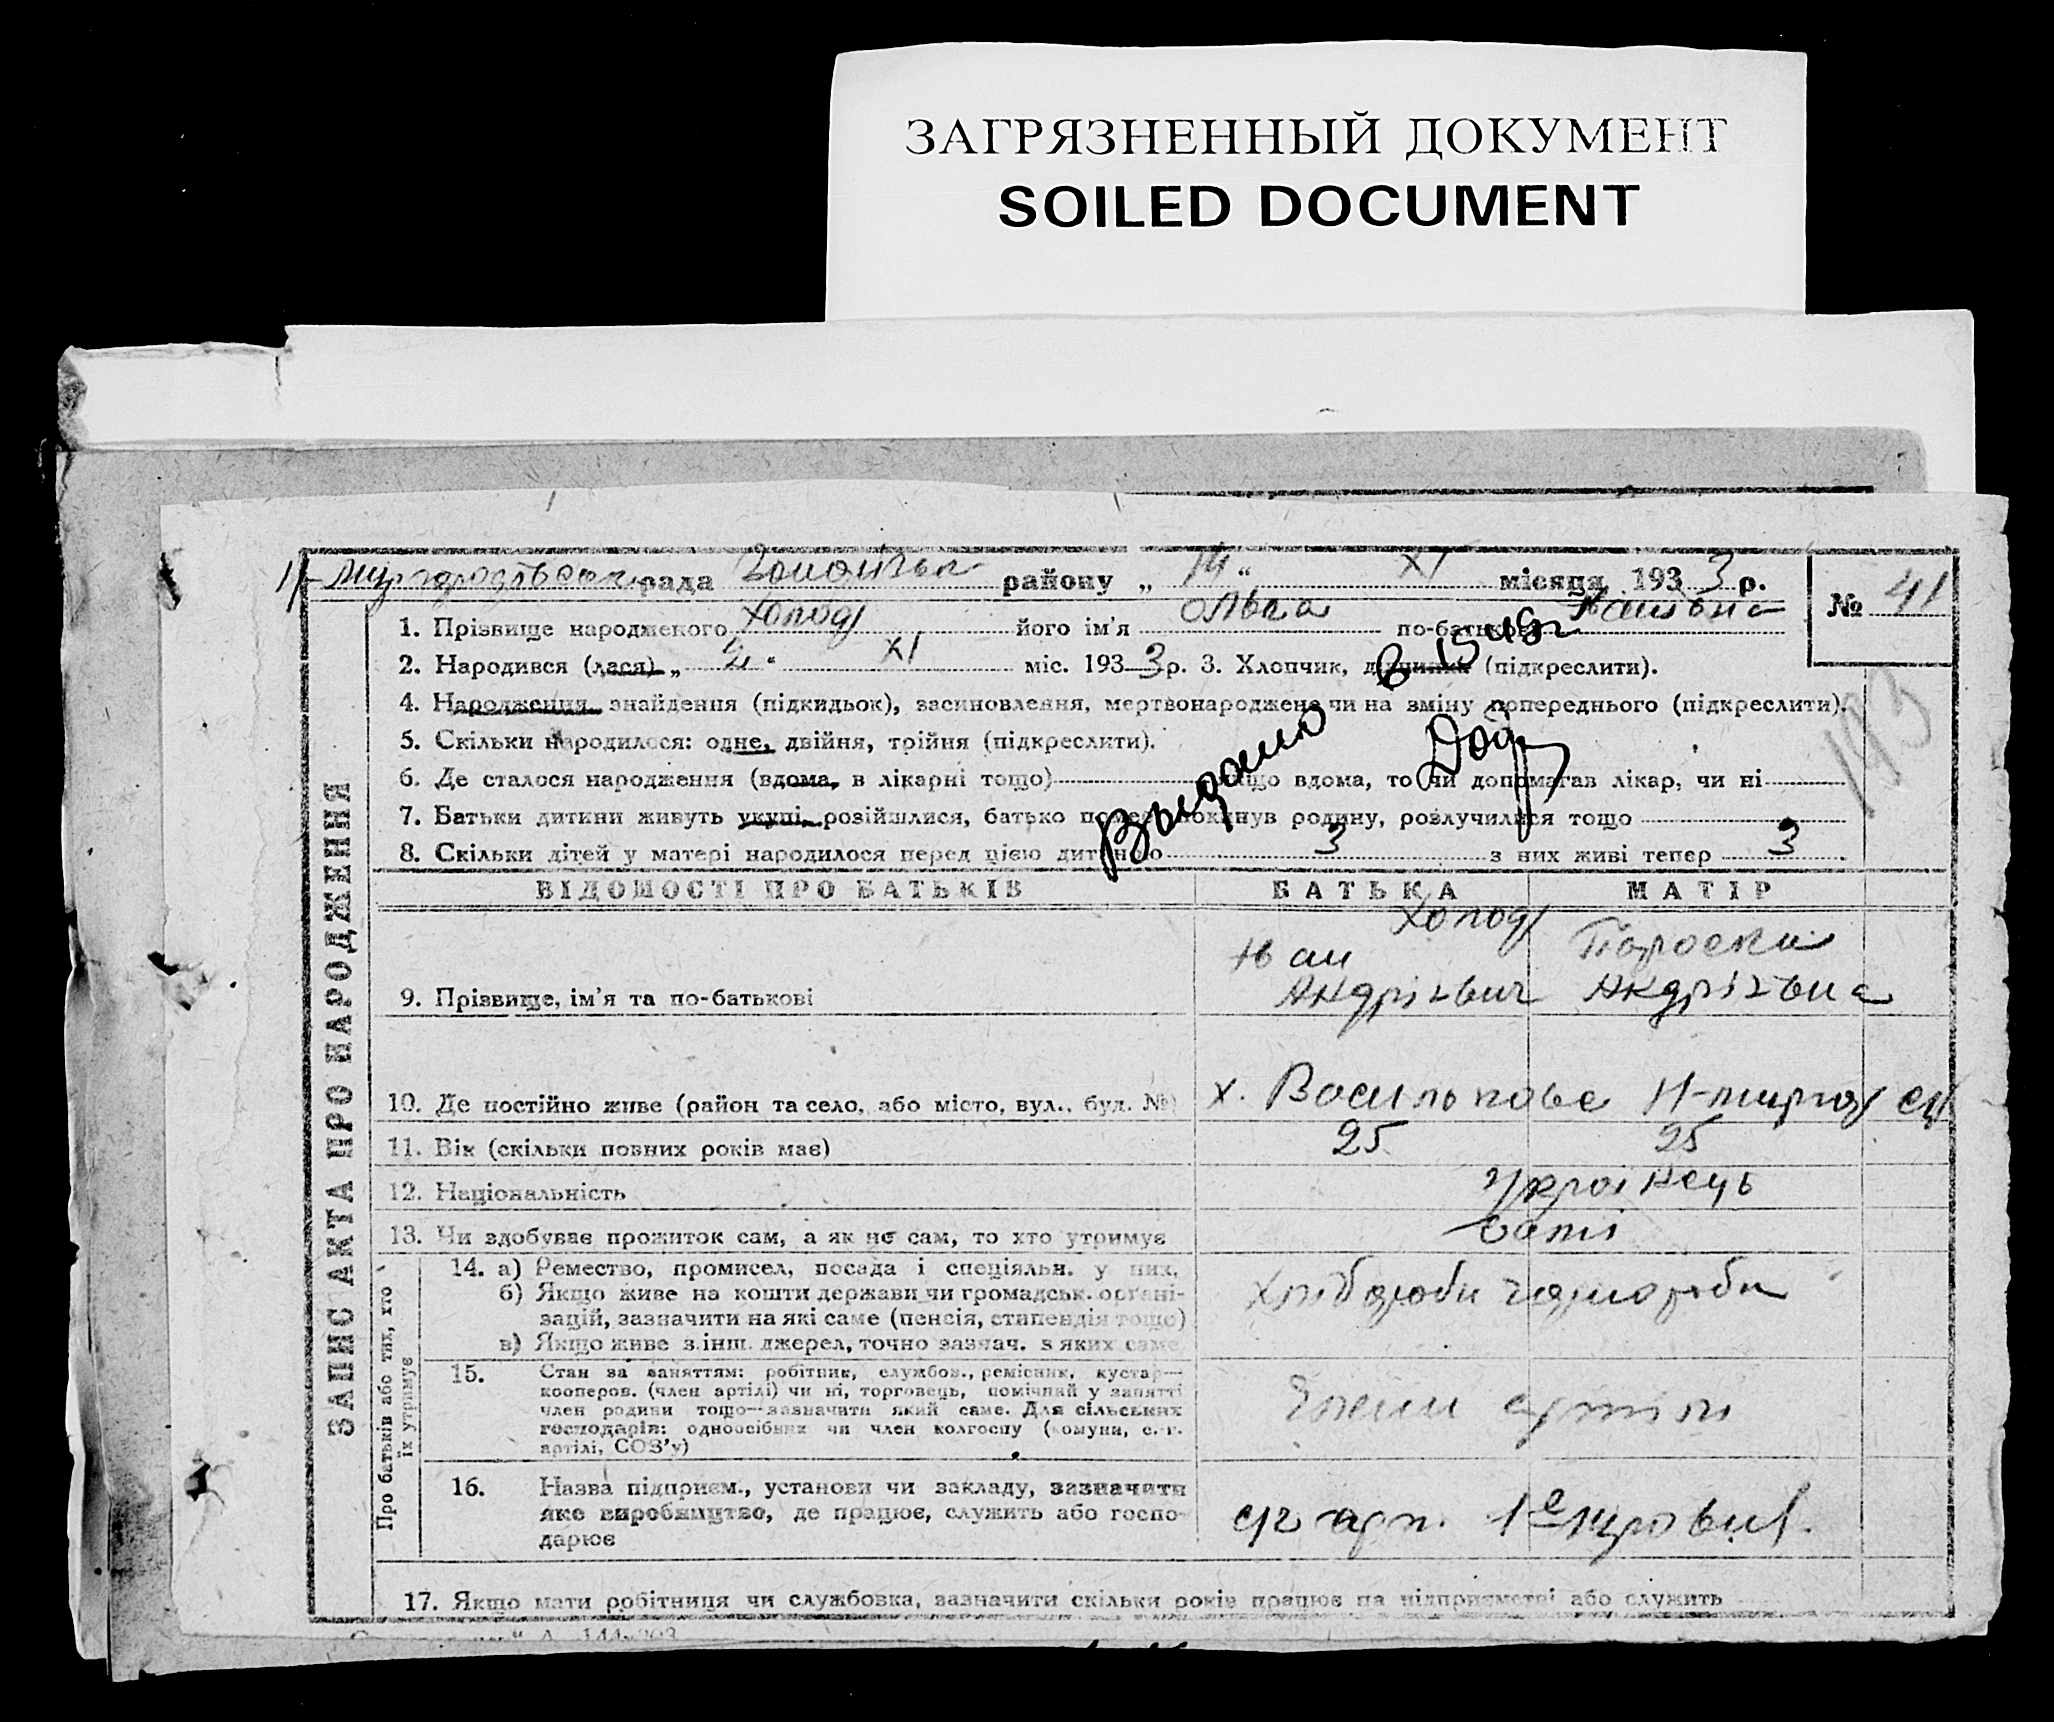 ЗАГРЯЗНЕННЫЙ ДОКУМЕНТ
SOILED DOCUMENT
рада району „ 14 “ XI місяця 193 3 р.
№ 41
1. Прізвище народженого Холод його ім'я Ольга по-батькові
2. Народився (лася) „ 2 “ XI міс. 193 3 р. 3. Хлопчик, дівчинка (підкреслити).
4. Народження, знайдення (підкидьок), засиновлення, мертвонароджене чи на зміну попереднього (підкреслити).
5. Скільки народилося: одне, двійня, трійня (підкреслити).
6. Де сталося народження (вдома, в лікарні тощо) якщо вдома, то чи допомагав лікар, чи ні
7. Батьки дитини живуть укупі, розійшлися, батько помер, покинув родину, розлучилися тощо
8. Скільки дітей у матері народилося перед цією дитиною 3 з них живі тепер 3
Выдано
193
ЗАПИС АКТА ПРО НАРОДЖЕННЯ
ВІДОМОСТІ ПРО БАТЬКІВ БАТЬКА МАТІР
Холод
9. Прізвище, ім'я та по-батькові Іван Андрієвич Параска Андріівна
10. Де постійно живе (район та село, або місто, вул., буд. №) х. Василькове
11. Вік (скільки повних років має) 25 25
12. Національність Українець
13. Чи здобуває прожиток сам, а як не сам, то хто утримує самі
Про батьків або тих, хто їх утримує
14. а) Ремество, промисел, посада і спеціяльн. у них,
б) Якщо живе на кошти держави чи громадськ. органі-
зацій, зазначити на які саме (пенсія, стипендія тощо)
в) Якщо живе з інш. джерел, точно зазнач. з яких саме
хлібороби чорнороби
15. Стан за заняттям: робітник, службов., ремісник, кустар—
кооперов. (член артілі) чи ні, торговець, помічний у занятті
член родини тощо—зазначити який саме. Для сільських
господарів: одноосібник чи член колгоспу (комуни, с.-г.
артілі, СОЗ'у)
члени артілі
16. Назва підприєм., установи чи закладу, зазначити
яке виробництво, де працює, служить або госпо-
дарює
с/г арт.
17. Якщо мати робітниця чи службовка, зазначити скільки років працює на підприємстві або служить